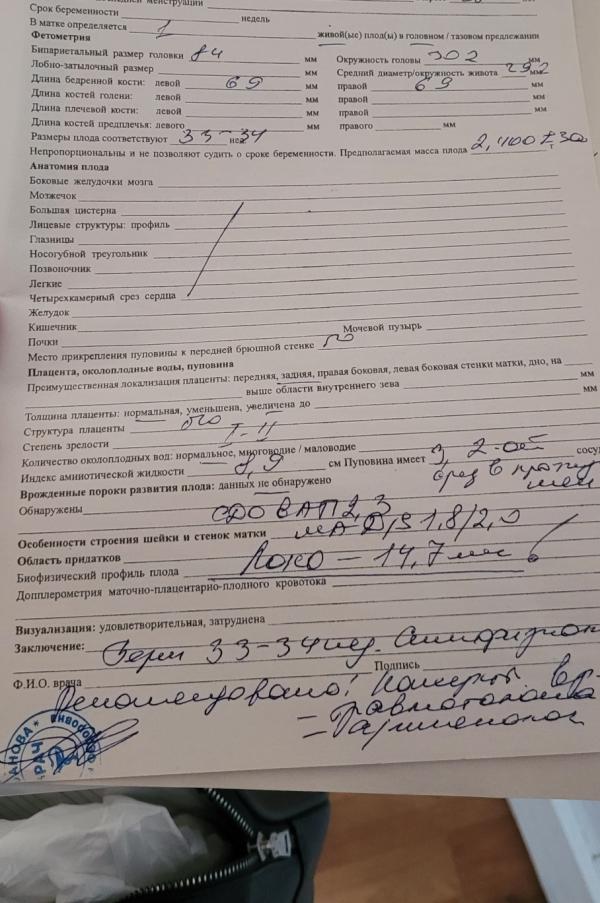 менструации
Срок беременности недель
В матке определяется 1 живой(ые) плод(ы) в головном / тазовом предлежании
Фетометрия
Бипариетальный размер головки 84 мм Окружность головы 302 мм
Лобно-затылочный размер мм Средний диаметр/окружность живота 292 мм
Длина бедренной кости: левой 69 мм правой 69 мм
Длина костей голени: левой мм правой мм
Длина плечевой кости: левой мм правой мм
Длина костей предплечья: левого мм правого мм
Размеры плода соответствуют 33-34 нед
Непропорциональны и не позволяют судить о сроке беременности. Предполагаемая масса плода 2,400 ± 30 г
Анатомия плода
Боковые желудочки мозга
Мозжечок
Большая цистерна
Лицевые структуры: профиль
Глазницы
Носогубной треугольник
Позвоночник
Легкие
Четырехкамерный срез сердца
Желудок
Кишечник
Почки Мочевой пузырь
Место прикрепления пуповины к передней брюшной стенке
Плацента, околоплодные воды, пуповина
Преимущественная локализация плаценты: передняя, задняя, правая боковая, левая боковая стенки матки, дно, на
выше области внутреннего зева мм
Толщина плаценты: нормальная, уменьшена, увеличена до мм
Структура плаценты
Степень зрелости I-II
Количество околоплодных вод: нормальное, многоводие / маловодие
Индекс амниотической жидкости 8,9 см Пуповина имеет 3 сосу
Врожденные пороки развития плода: данных не обнаружено
Обнаружены СДО В АП 2,3
Особенности строения шейки и стенок матки МА D/S 1,8/2,0
Область придатков
Биофизический профиль плода Лоно - 14,7 мм!
Допплерометрия маточно-плацентарно-плодного кровотока
Визуализация: удовлетворительная, затруднена
Заключение: Берем 33-34 нед.
Ф.И.О. врача Подпись
Рекомендовано!
травматолога
ВРАЧ